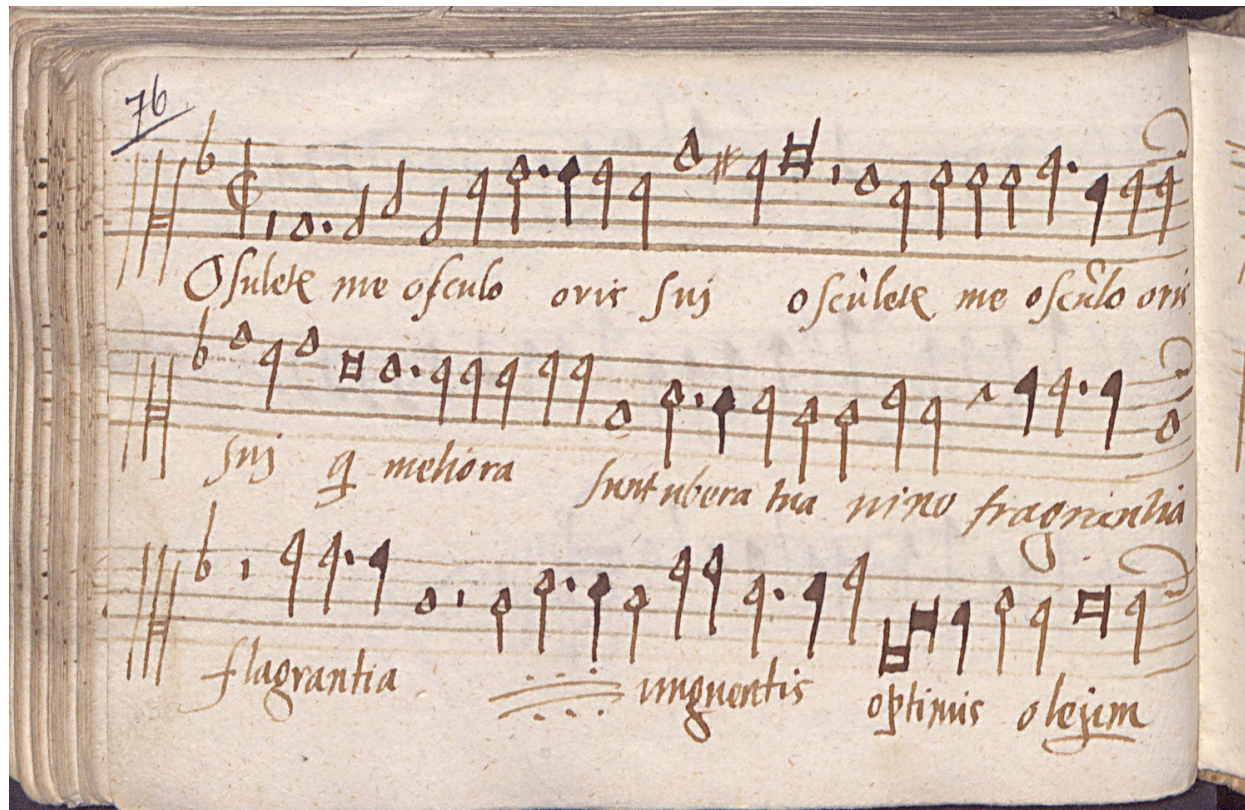 76
Osulete me osculo oris suj osculete me osculo oris
suj q meliora sunt ubera tua uino fragrantia
flagrantia unguentis optimis olejum